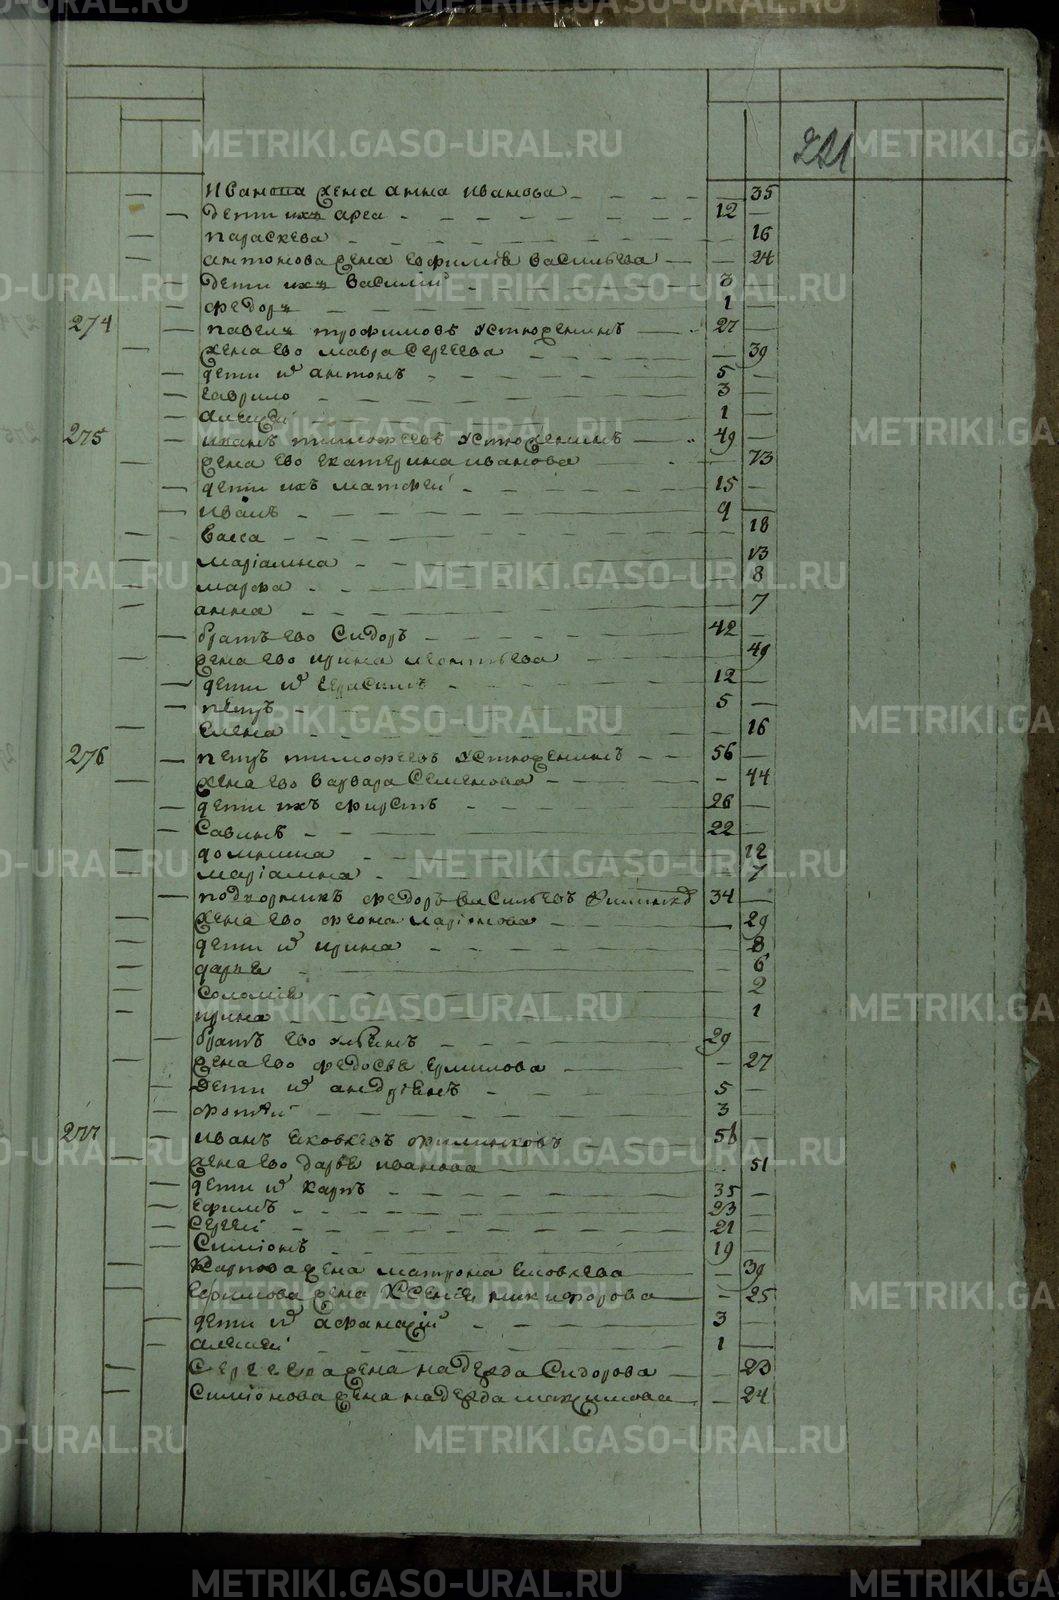 221
Иванова жена анна иванова 35
дети ихъ 12
параскева 16
антонова жена васильева 24
дети ихъ василии 3
федоръ 1
274 павелъ трофимовъ устюженинъ 27
жена ево мавра сергеева 39
дети их антонъ 5
гаврило 3
алексеи 1
275 иванъ тимофеевъ устюженинъ 49
жена ево екатерина иванова
дети ихъ матфеи 15
иванъ 9
васса 18
маріамна 13
марфа 8
анна 7
братъ ево Сидоръ 42
жена ево ирина леонтьева 49
дети их герасимъ 12
петръ 5
елена 16
276 петръ тимофеевъ устюженинъ 56
жена ево варвара Семенова 44
дети ихъ фирсъ 26
Савинъ 22
домнина 12
маріамна 7
подворникъ федоръ васильевъ 34
жена ево ларіонова 29
дети их ирина 8
дарья 6
соломія 2
ирина 1
братъ ево 29
жена ево федосья ермилова 27
дети их андреянъ 5
фотеи 3
277 иванъ яковлевъ филинковъ
жена ево дарья иванова 51
дети их карпъ 35
ефимъ 23
Сергеи 21
Симіонъ 19
Карпова жена матрона яковлева 39
ефимова жена Ксенія никифорова 25
дети их афанасіи 3
алексеи 1
Сергеева жена надежда Сидорова 23
Симіонова жена надежда максимова 24
METRIKI.GASO-URAL.RU